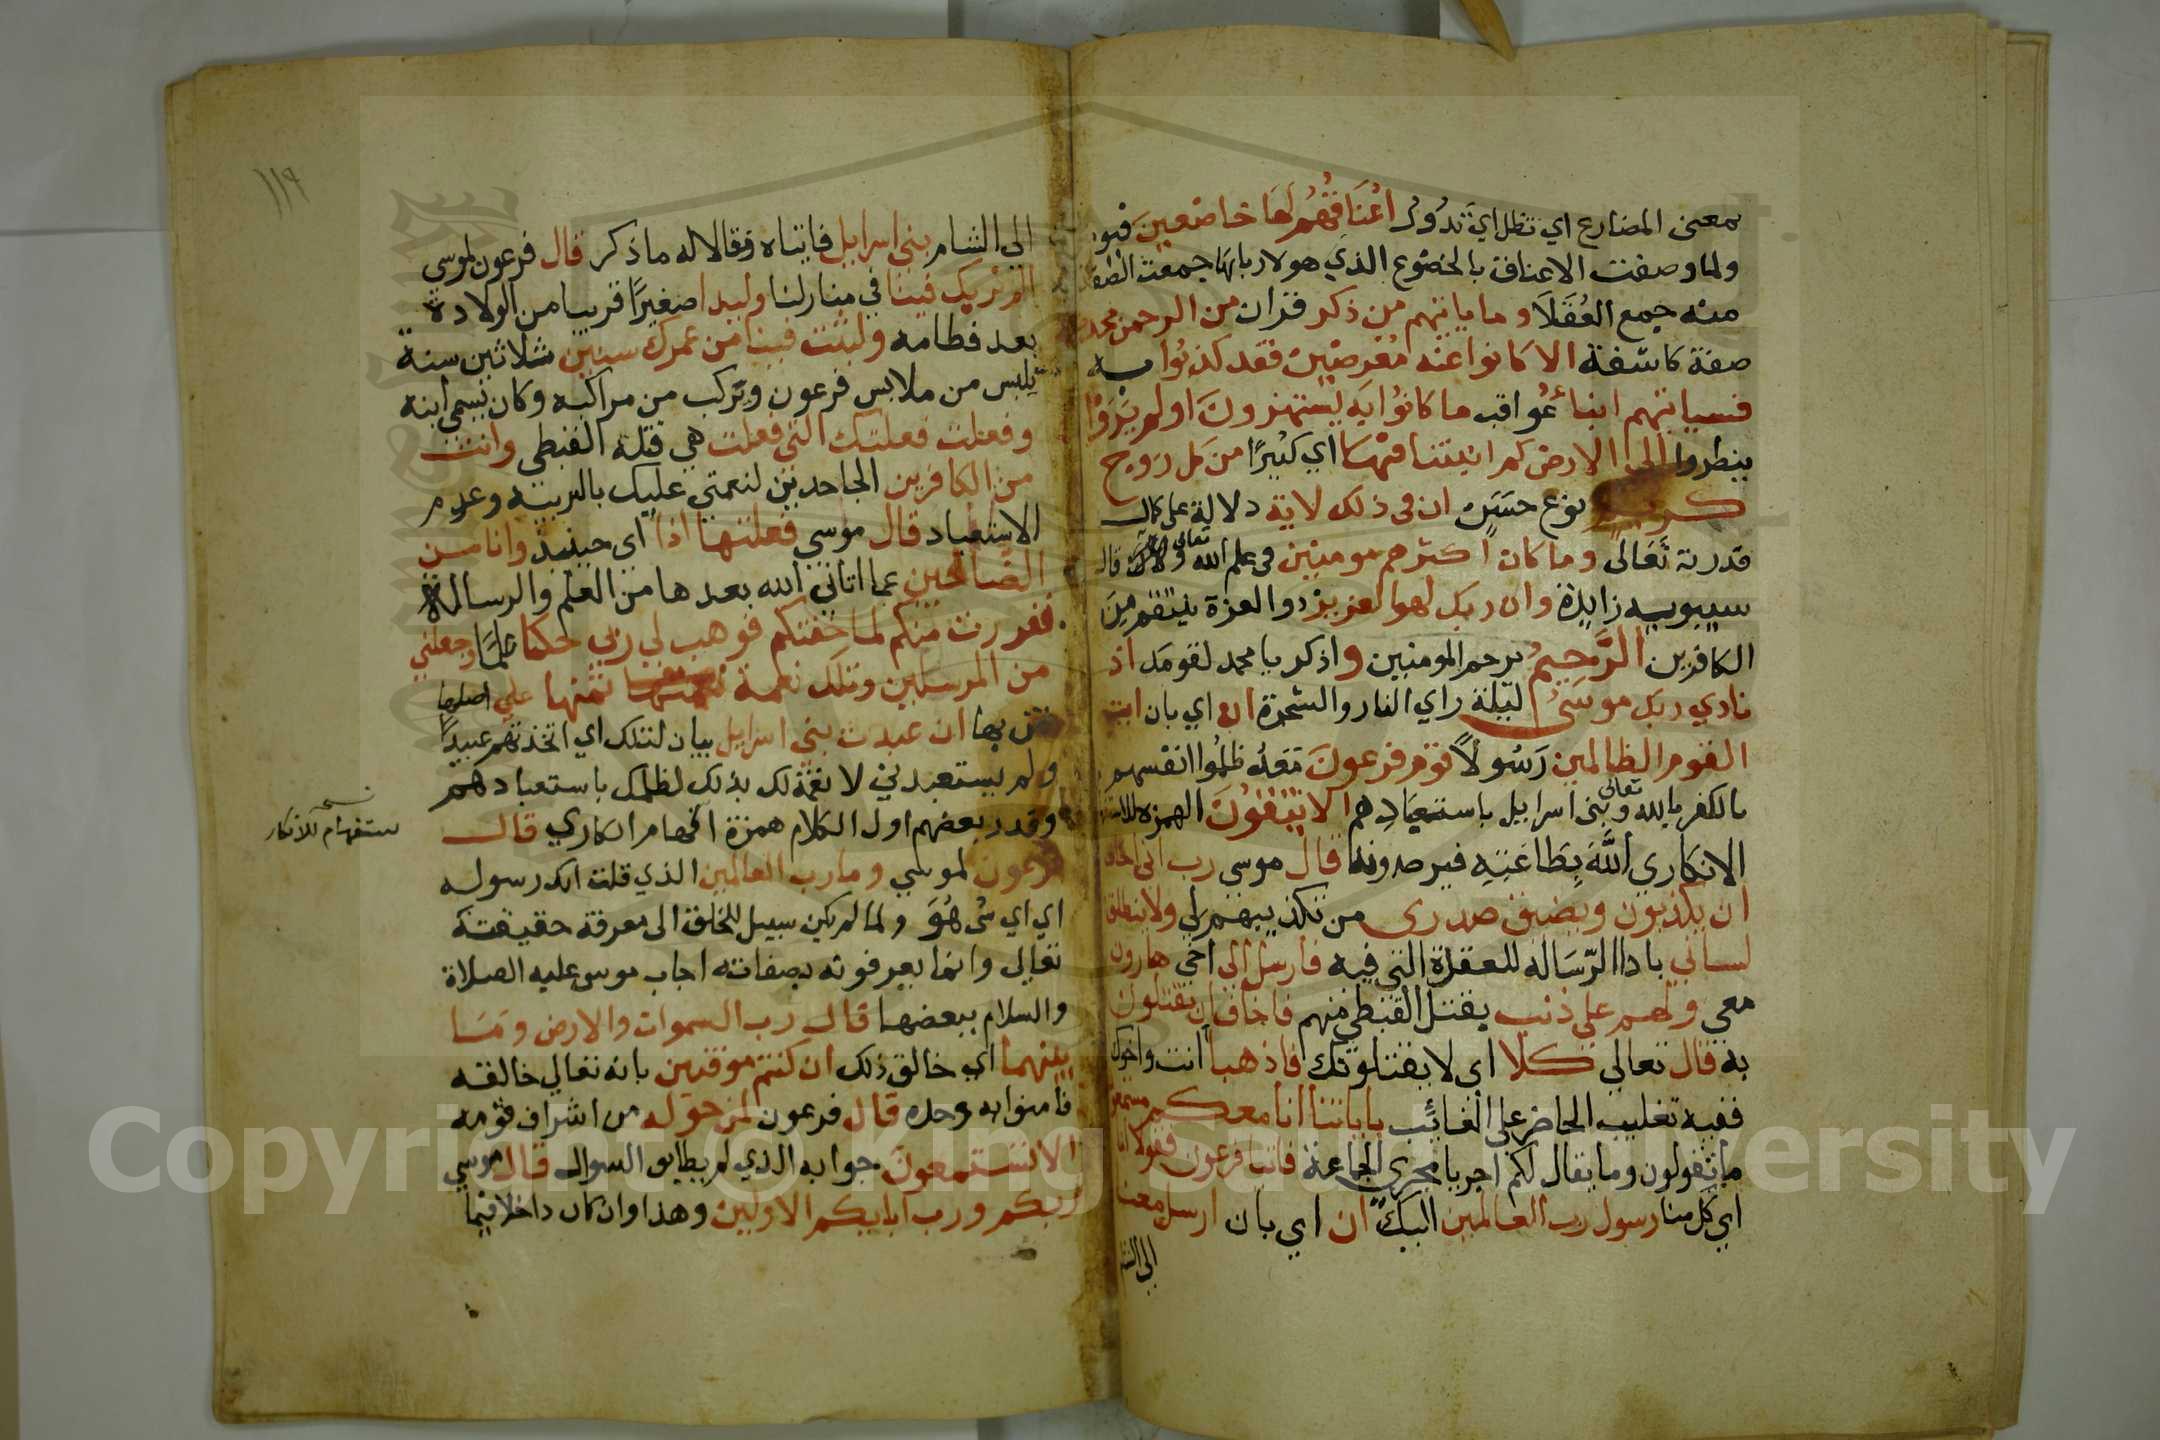 بمعنى المضارع اي تظل اي تدوم اعناقهم لها خاضعين فيو
ولما وصفت الاعناق بالخضوع الذي هو لاربابها جمعت الصفة
منه جمع العقلا وما ياتيهم من ذكر قران من الرحمن محدث
صفة كاشفة الا كانوا عنه معرضين فقد كذبوا به
فسياتيهم انباء عواقب ما كانوا به يستهزون اولم يروا
ينظروا الى الارض كم انبتنا فيها اي كثيرا من كل زوج
كريم نوع حسن ان في ذلك لاية دلالة على كمال
قدرته تعالى وما كان اكثرهم مومنين في علم الله تعالى وكان قال
سيبويه زايدة وان ربك لهو العزيز ذو العزة ينتقم من
الكافرين الرحيم يرحم المومنين واذكر يا محمد لقومك اذ
نادي ربك موسى ليلة راي النار والشجرة ان اي بان ايت
القوم الظالمين رسولا قوم فرعون معه ظلموا انفسهم
بالكفر بالله تعالى وبني اسرائيل باستعبادهم الا يتقون الهمزة للاستفهام
الانكاري الله بطاعته فيوحدونه قال موسى رب اني اخاف
ان يكذبون ويضيق صدري من تكذيبهم لي ولا ينطلق
لساني باداء الرسالة للعقدة التي فيه فارسل الى اخي هارون
معي ولهم علي ذنب بقتل القبطي منهم فاخاف ان يقتلون
به قال تعالى كلا اي لا يقتلونك فاذهبا انت واخوك
ففيه تغليب الحاضر على الغائب باياتنا انا معكم مستمعون
ما تقولون وما يقال لكم اجريا مجرى الجماعة فاتيا فرعون فقولا انا
اي كل منا رسول رب العالمين اليك ان اي بان ارسل معنا
الى الشا
١١٩
الى الشام بني اسرايل فاتياه فقالا له ما ذكر قال فرعون لموسى
الم نربك فينا في منازلنا وليدا صغيرا قريبا من الولادة
بعد فطامه ولبثت فينا من عمرك سنين ثلاثين سنة
يلبس من ملابس فرعون ويركب من مراكبه وكان يسمى ابنه
وفعلت فعلتك التي فعلت هي قتله القبطي وانت
من الكافرين الجاحدين لنعمتي عليك بالتربية وعدم
الاستعباد قال موسى فعلتها اذا اي حينيذ وانا من
الضالين عما اتاني الله بعدها من العلم والرسالة
ففررت منكم لما خفتكم فوهب لي ربي حكما علما وجعلني
من المرسلين وتلك نعمة تمنها علي اصلها
تمن بها ان عبدت بني اسرايل بيان لتلك اي اتخذتهم عبيدا
ولم يستعبدني لا نعمة لك بذلك لظلمك باستعبادهم
وقدر بعضهم اول الكلام همزة انكاري قال
ستفهام للانكار
فرعون لموسى وما رب العالمين الذي قلت انك رسوله
اي اي شي هو ولما لم يكن سبيل للخلق الى معرفة حقيقته
تعالى وانما يعرفونه بصفاته اجاب موسى عليه الصلاة
والسلام ببعضها قال رب السموات والارض وما
بينهما اي خالق ذلك ان كنتم موقنين بانه تعالى خالقه
فامنوا به وحده قال فرعون لمن حوله من اشراف قومه
الا تستمعون جوابه الذي لم يطابق السوال قال موسى
ربكم ورب ابايكم الاولين وهذا وان كان داخلا فيما
Copyright © King Saud University